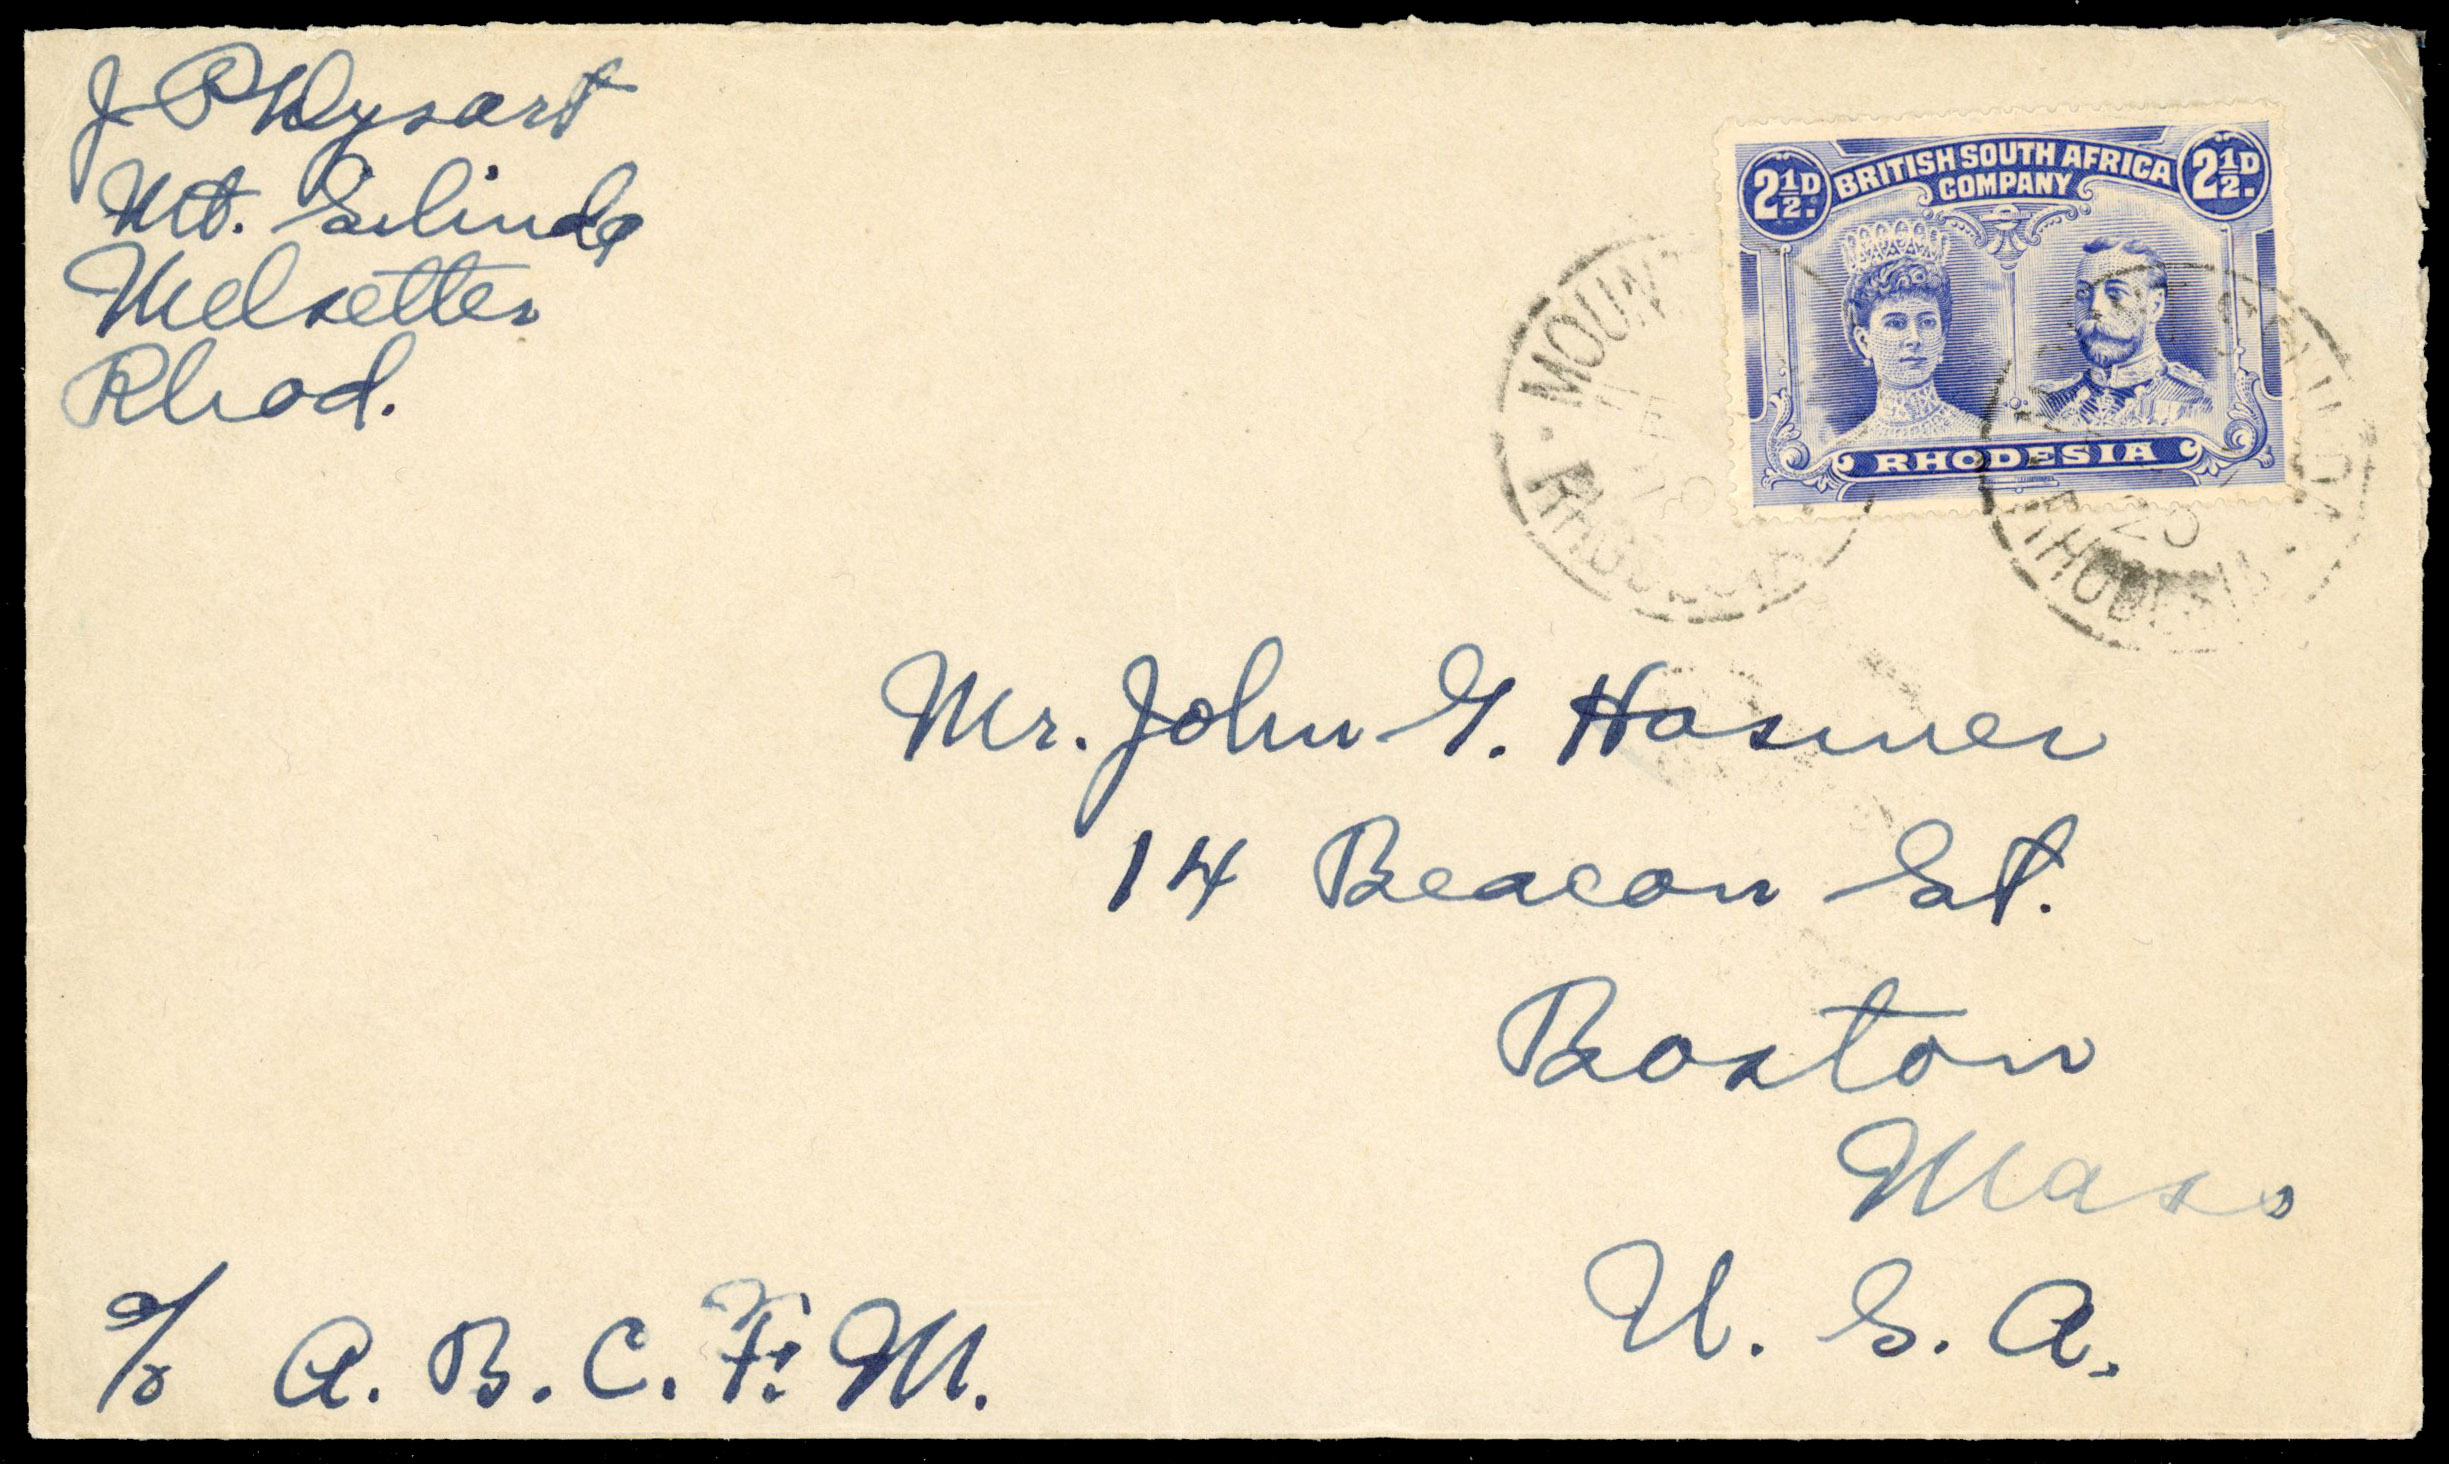 J P Dysart
Mt. Silinda
Melsetter
Rhod.
2½D BRITISH SOUTH AFRICA 2½D.
COMPANY
RHODESIA
MOUNT
Mr. John G. Hosmer
14 Beacon St.
Boston
Mass
U. S. A.
c/o A. B. C. F. M.